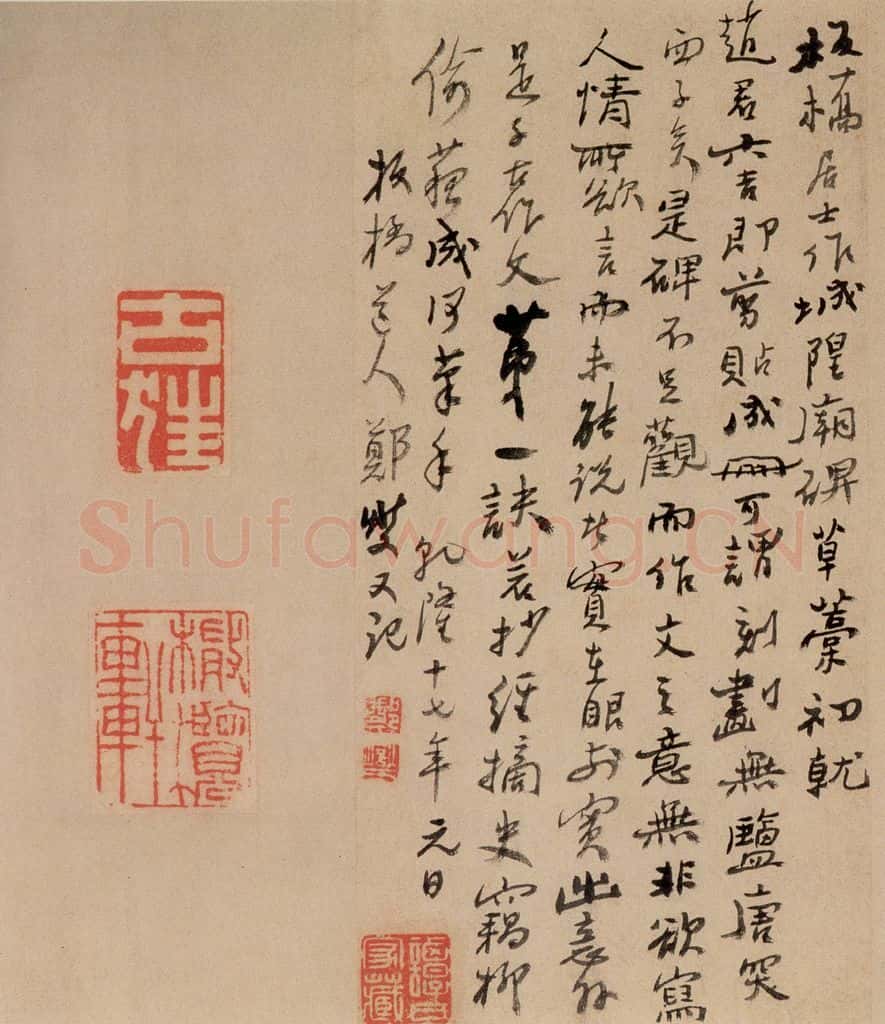 板橋居士作城隍廟碑草藁初就
趙君六吉即剪貼成冊可謂刻畫無鹽唐突
西子矣是碑不足觀而作文之意無非欲寫
人情所欲言而未能說者實在眼前實出意外
是千古作文第一訣若抄經摘史竊柳
偷蘓成何筆手乾隆十七年元日
板橋道人鄭燮又記
鄭燮
家藏
橄欖軒
Shufawang.CN